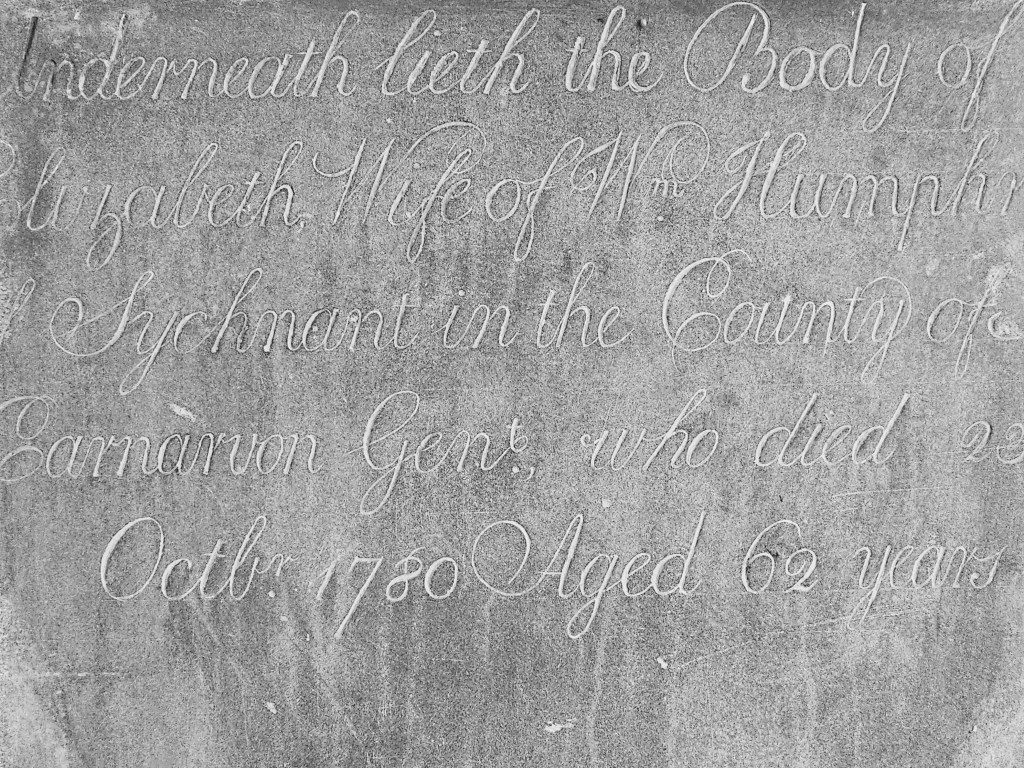 Underneath lieth the Body of
Elizabeth, Wife of Wm Humphr
of Sychnant in the County of
Carnarvon Gent., who died 23
Octbr. 1780 Aged 62 years